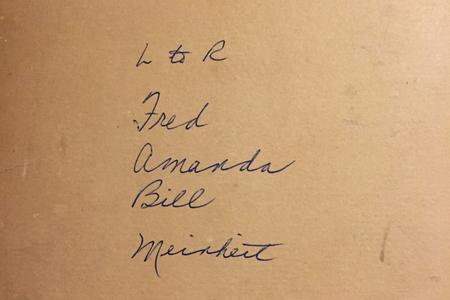 L to R
Fred
Amanda
Bill
Meinheit